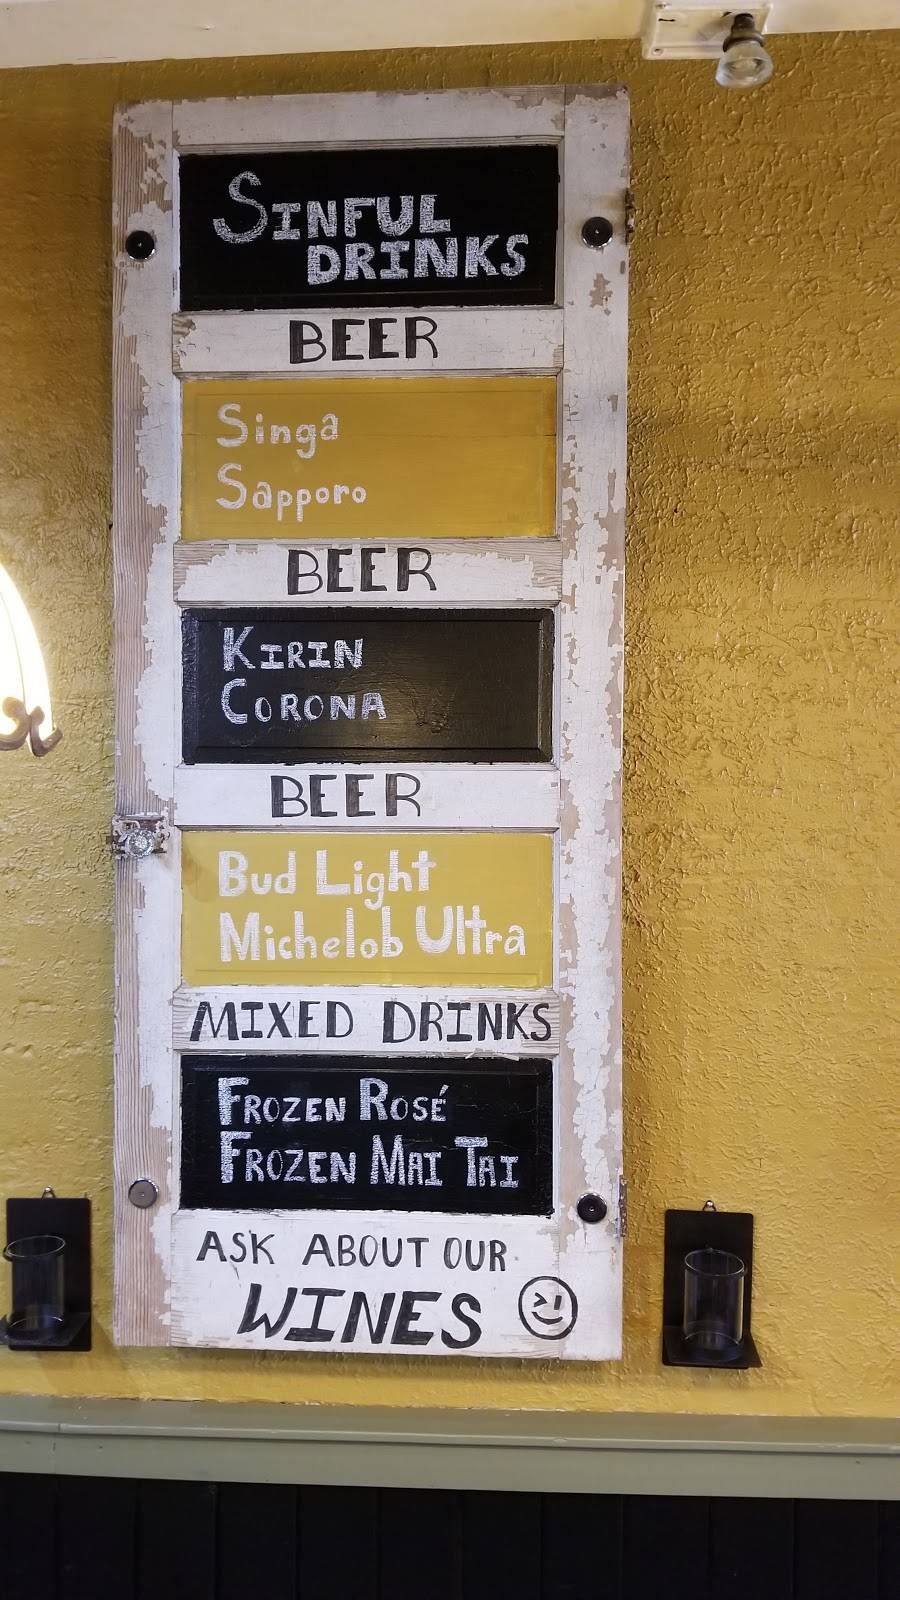 SINFUL
DRINKS
BEER
Singa
Sapporo
BEER
KIRIN
CORONA
BEER
Bud Light
Michelob Ultra
MIXED DRINKS
FROZEN ROSÉ
FROZEN MAI TAI
ASK ABOUT OUR
WINES